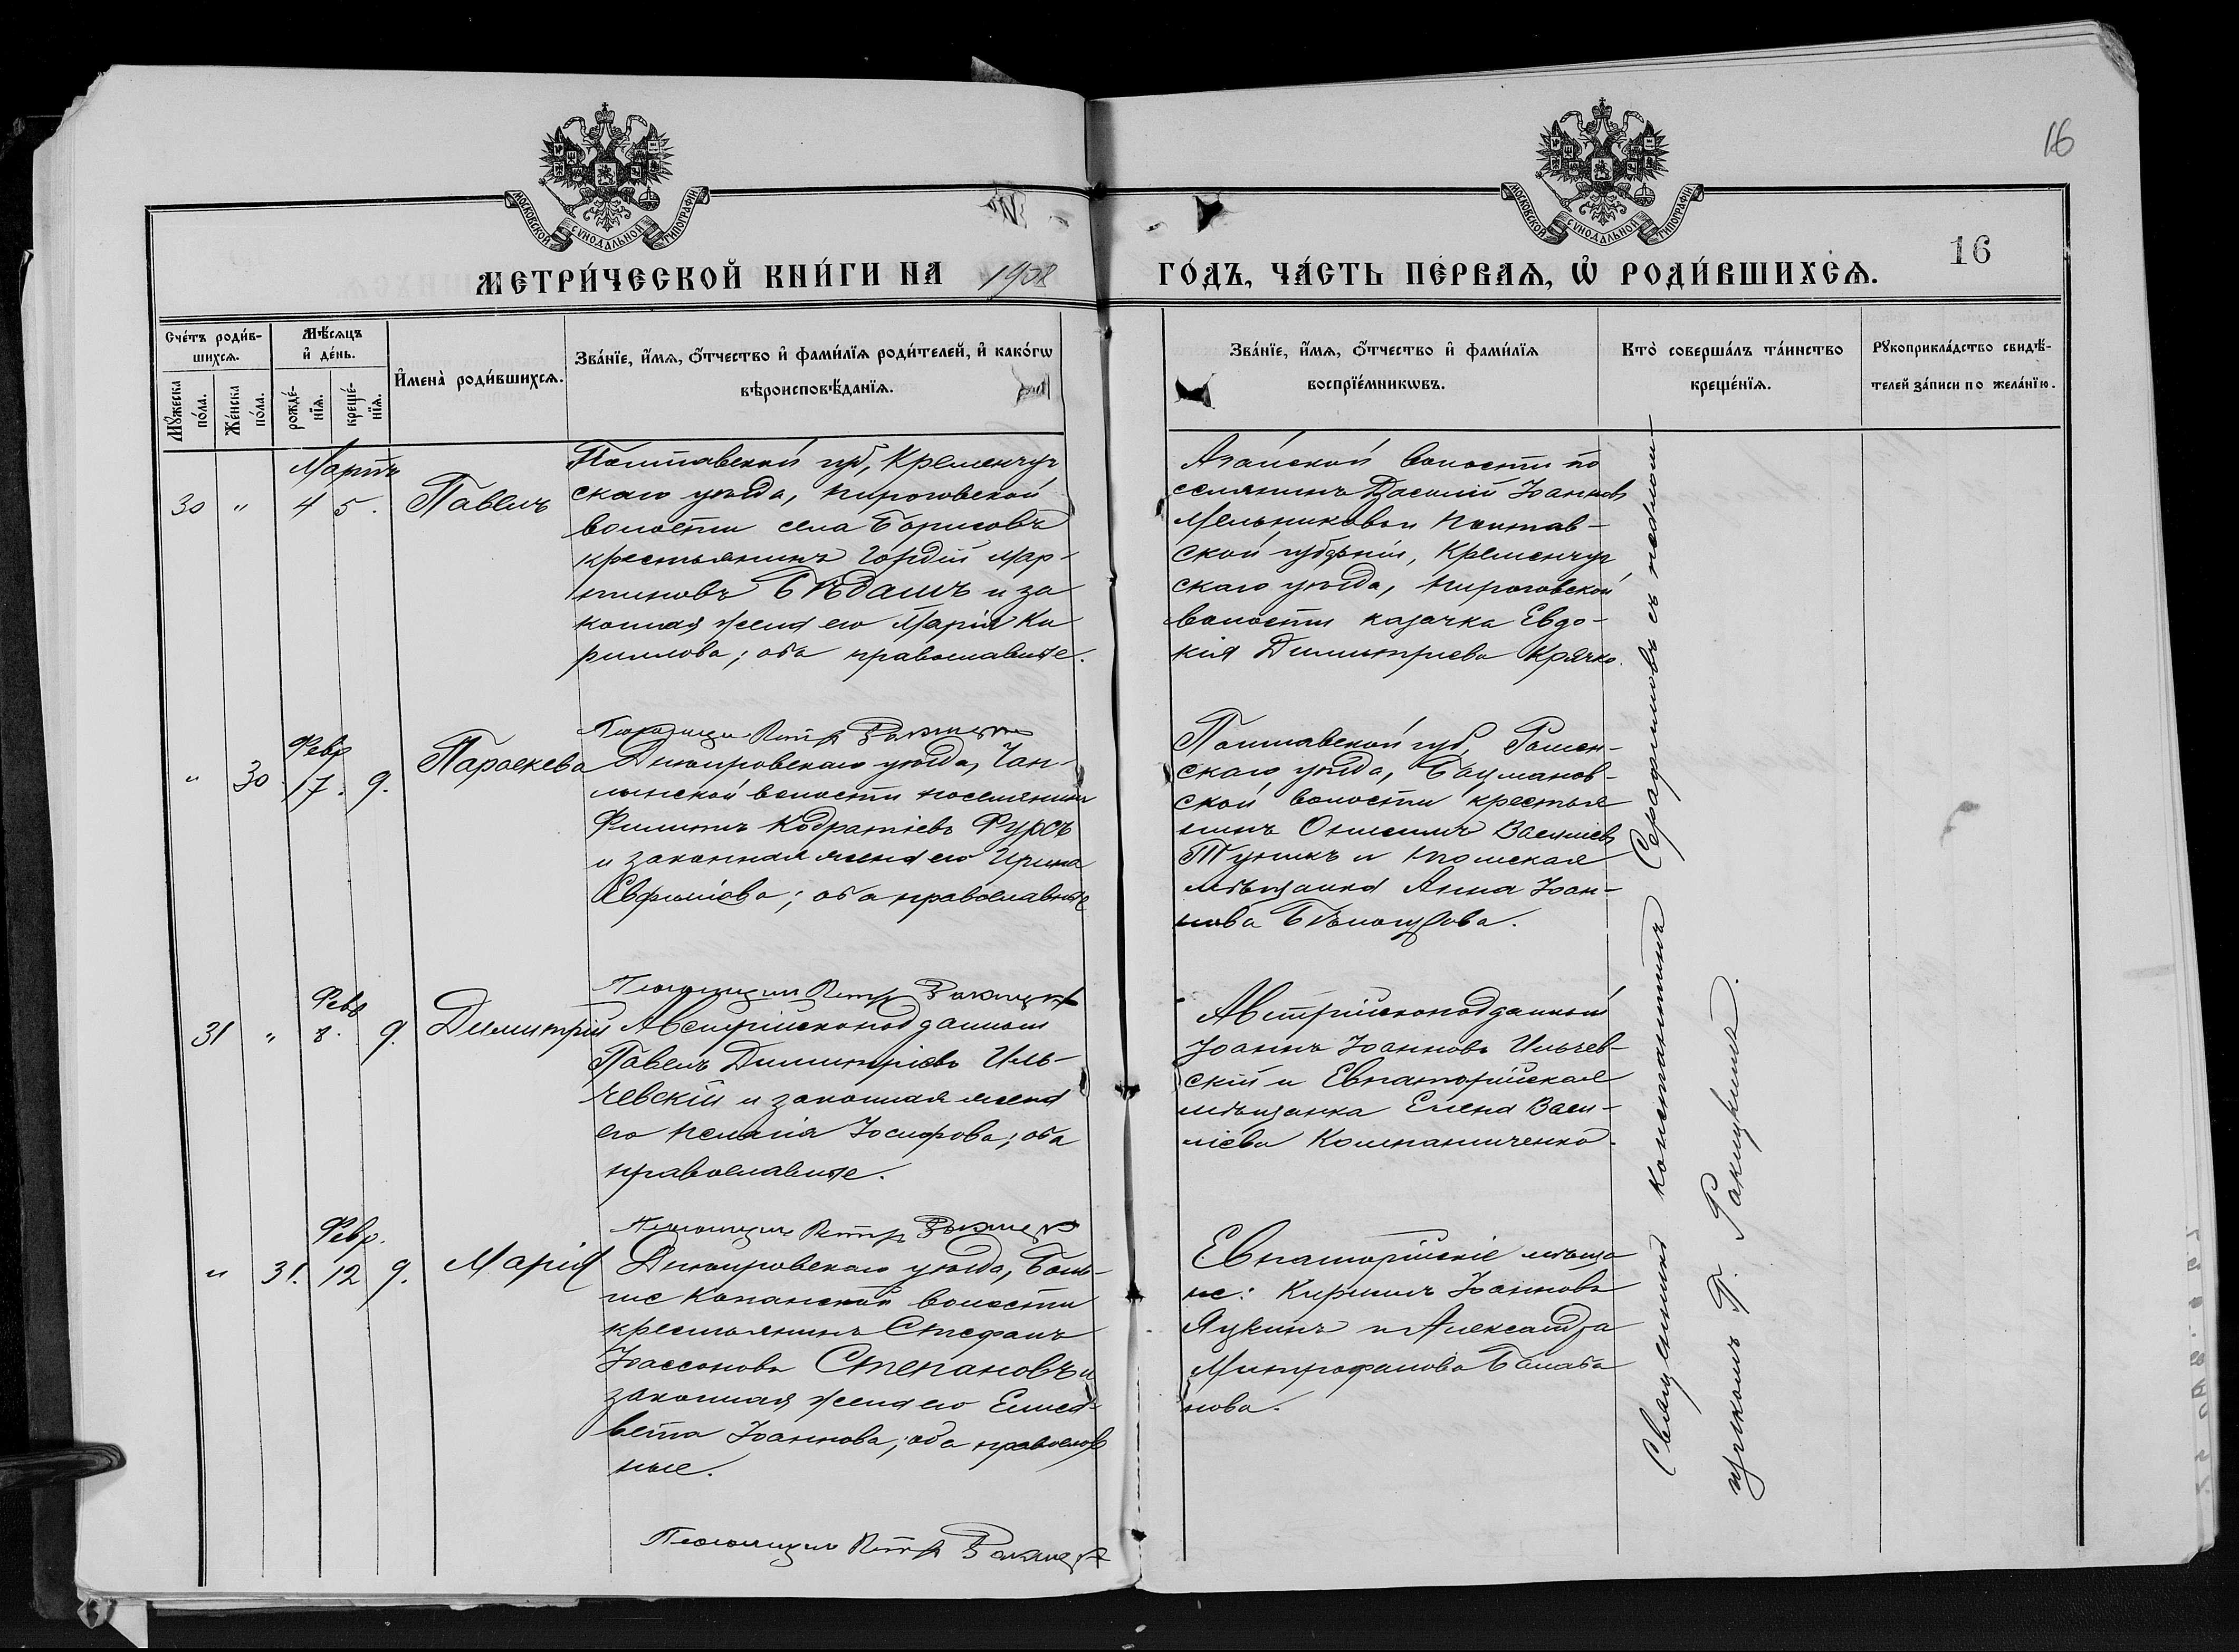 16
МОСКОВСКОЙ СѴНОДАЛЬНОЙ ТИПОГРАФІИ
МОСКОВСКОЙ СѴНОДАЛЬНОЙ ТИПОГРАФІИ
16
МЕТРИ́ЧЕСКОЙ КНИ́ГИ НА 1908 ГО́ДЪ, ЧА́СТЬ ПЕ́РВАѦ, Ѡ҆ РОДИ́ВШИХСѦ.
Сче́тъ роди́в-
шихсѧ.
Мꙋ́жеска
по́ла.
Же́нска
по́ла.
Мѣ́сѧцъ
и҆ де́нь.
рожде́-
нїѧ.
креще́-
нїѧ.
И҆мена̀ роди́вшихсѧ.
Зва́нїе, и҆́мѧ, ѻ҆́тчество и҆ фами́лїѧ роди́телей, и҆ како́гѡ
вѣроисповѣ́данїѧ.
Зва́нїе, и҆́мѧ, ѻ҆́тчество и҆ фами́лїѧ
воспрїе́мникѡвъ.
Кто̀ соверша́лъ та́инство
креще́нїѧ.
Рꙋкоприкла́дство свидѣ́-
телей за́писи по жела́нїю.
Мартъ
30 " 4 5. Павелъ
Полтавской губ, Кременчуг
скаго уѣзда, Пироговской
волости села Борисовъ
крестьянинъ Гордій Мар-
тиновъ Бѣдашъ и за
конная жена его Марія Ки
риллова; оба православные.
Агайской волости по
селянинъ Василій Іоаннов
Мельниковъ и Полтав-
ской губерніи, Кременчуг
скаго уѣзда, Пироговской
волости казачка Евдо-
кия Димитріева Крячко.
Псаломщикъ Петръ
Февр
" 30. 17. 9. Параскева
Днѣпровскаго уѣзда, Чап-
линской волости поселянинъ
Филиппъ Кодратіевъ Фурсъ
и законная жена его Ирина
Евфиміева; оба православные
Полтавской губ, Ромен-
скаго уѣзда, Бацманов-
ской волости крестья
нинъ Онисимъ Василіев
Туникъ и
мѣщанка Анна Іоан-
нова
Псаломщикъ Петръ
Февр
31 " 8. 9. Димитрій
Австрійскоподданный
Павелъ Димитріевъ Иль-
чевскій и законная жена
его Пелагія Іосифова; оба
православные.
Австрійскоподданный
Іоаннъ Іоанновъ Ильчев-
скій и Евпаторійская
мѣщанка Елена Васи-
ліева Компаниченко.
Псаломщикъ Петръ
Февр.
" 31. 12 9. Марія
Днѣпровскаго уѣзда, Боль-
ше Копанской волости
крестьянинъ Стефанъ
Іассоновъ Степановъ и
законная жена его Елиса-
вета Іоаннова; оба православ
ные.
Евпаторійскіе мѣща
не: Кириллъ Іоанновъ
Яцкинъ и Александра
Митрофанова Балаба
нова.
Псаломщикъ Петръ
Священникъ Константинъ Серафимовъ съ псалом-
щикомъ П. Ракицкимъ.